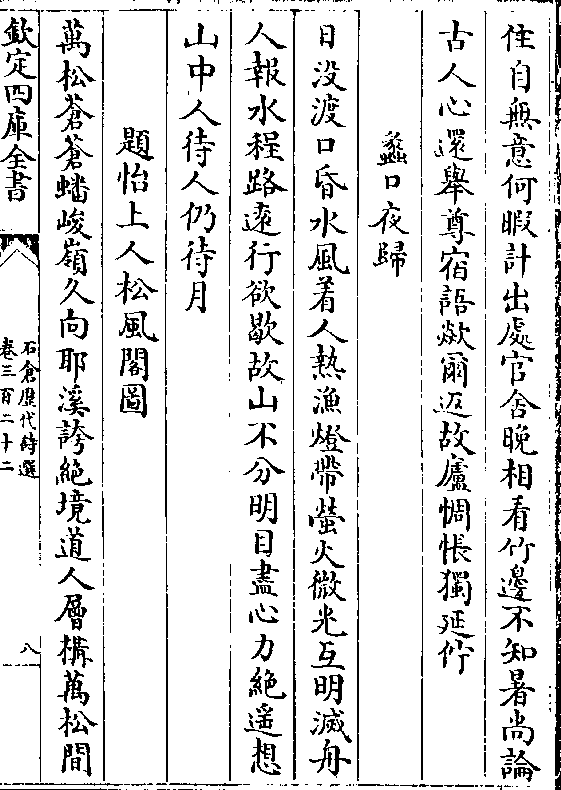 住自無意何暇計出處官舍晚相看竹邊不知暑尚論
古人心還舉尊宿語歘爾返故廬惆悵獨延佇
蠡口夜歸
日没渡口昏水風着人熱漁燈帶螢火微光互明滅舟
人報水程路遠行欲歇故山不分明目盡心力絶遥想
山中人待人仍待月
題怡上人松風閣圖
萬松蒼蒼蟠峻嶺久向耶溪誇絶境道人層構萬松間
欽定四庫全書
石倉歷代詩選
卷三百二十二
八